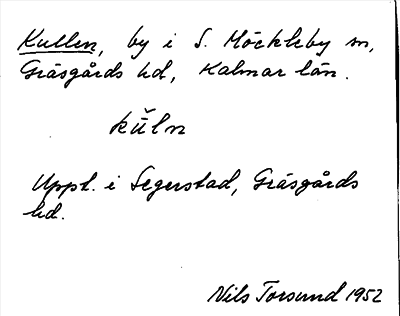 Kullen, by i S. Möckleby sn,
Gräsgårds hd, Kalmar län.
kŭln
Uppt. i Segerstad, Gräsgårds
hd.
Nils Torsund 1952